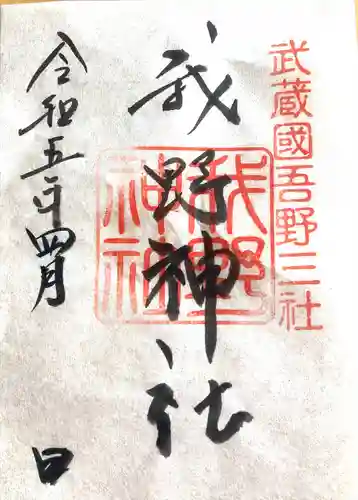 武蔵國吾野三社
我野神社
我野神社
令和五年四月
日